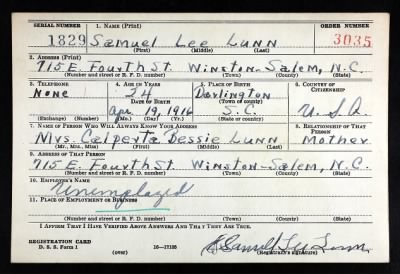 SERIAL NUMBER 1. NAME (Print) ORDER NUMBER
1829 Samuel Lee Lunn 3035
(First) (Middle) (Last)
2. ADDRESS (Print)
715 E. Fourth St. Winston-Salem, N.C.
(Number and street or R. F. D. number) (Town) (County) (State)
3. TELEPHONE 4. AGE IN YEARS 5. PLACE OF BIRTH 6. COUNTRY OF CITIZENSHIP
None 24 Darlington
DATE OF BIRTH (Town or county)
Apr. 19, 1916 S.C. U.S.A.
(Exchange) (Number) (Mo.) (Day) (Yr.) (State or country)
7. NAME OF PERSON WHO WILL ALWAYS KNOW YOUR ADDRESS 8. RELATIONSHIP OF THAT PERSON
Mrs. Bessie Lunn Mother
(Mr., Mrs., Miss) (First) (Middle) (Last)
9. ADDRESS OF THAT PERSON
715 E. Fourth St. Winston-Salem, N.C.
(Number and street or R. F. D. number) (Town) (County) (State)
10. EMPLOYER'S NAME
Unemployed
11. PLACE OF EMPLOYMENT OR BUSINESS
(Number and street or R. F. D. number) (Town) (County) (State)
I AFFIRM THAT I HAVE VERIFIED ABOVE ANSWERS AND THAT THEY ARE TRUE.
REGISTRATION CARD
D. S. S. Form 1 (over) 16-17105 Samuel Lee Lunn
(Registrant's signature)